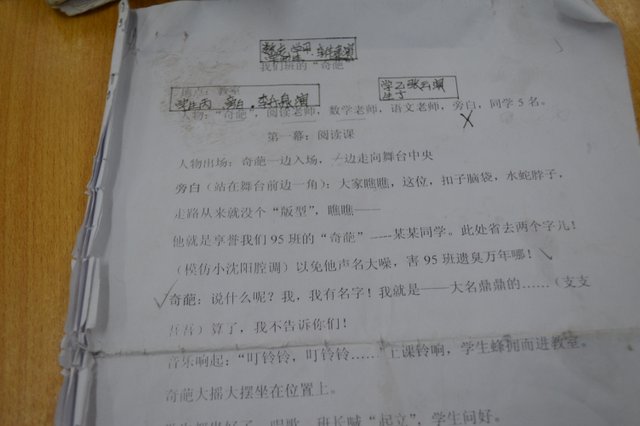 我们班的“奇葩
地点：教室
人物：“奇葩”，阅读老师，数学老师，语文老师，旁白，同学5名。
第一幕：阅读课
人物出场：奇葩一边入场，一边走向舞台中央
旁白（站在舞台前边一角）：大家瞧瞧，这位，扣子脑袋，水蛇脖子，
走路从来就没个“版型”，瞧瞧——
他就是享誉我们95班的“奇葩”——某某同学。此处省去两个字儿！
（模仿小沈阳腔调）以免他声名大噪，害95班遗臭万年哪！
奇葩：说什么呢？我，我有名字！我就是——大名鼎鼎的……（支支
吾吾）算了，我不告诉你们！
音乐响起：“叮铃铃，叮铃铃……”上课铃响，学生蜂拥而进教室。
奇葩大摇大摆坐在位置上。
班长喊“起立”，学生问好。